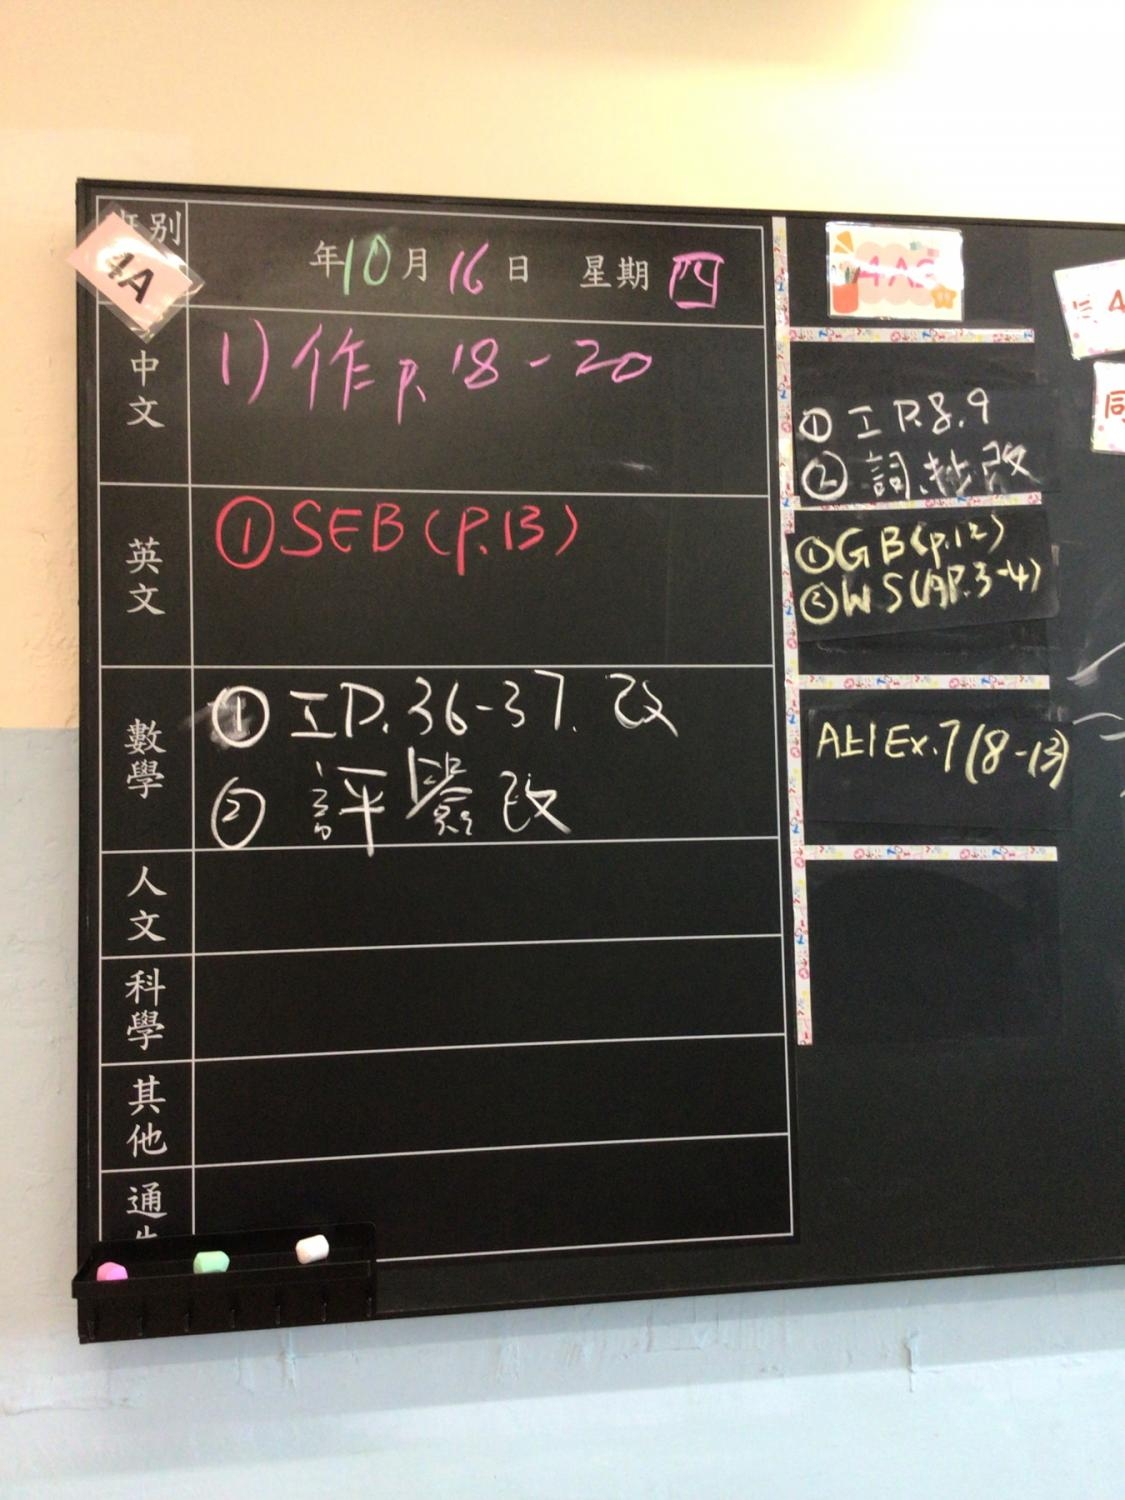 別
4A
年10月16日 星期四
中文
1) 作 P. 18-20
英文
① SEB (p.13)
數學
① 工P. 36-37. 改
② 評 改
人文
科學
其他
通
① 工 P.8.9
② 詞 抄 改
① GB (p.12)
② WS (AP.3-4)
A上1 Ex.7 (8-13)
4
同